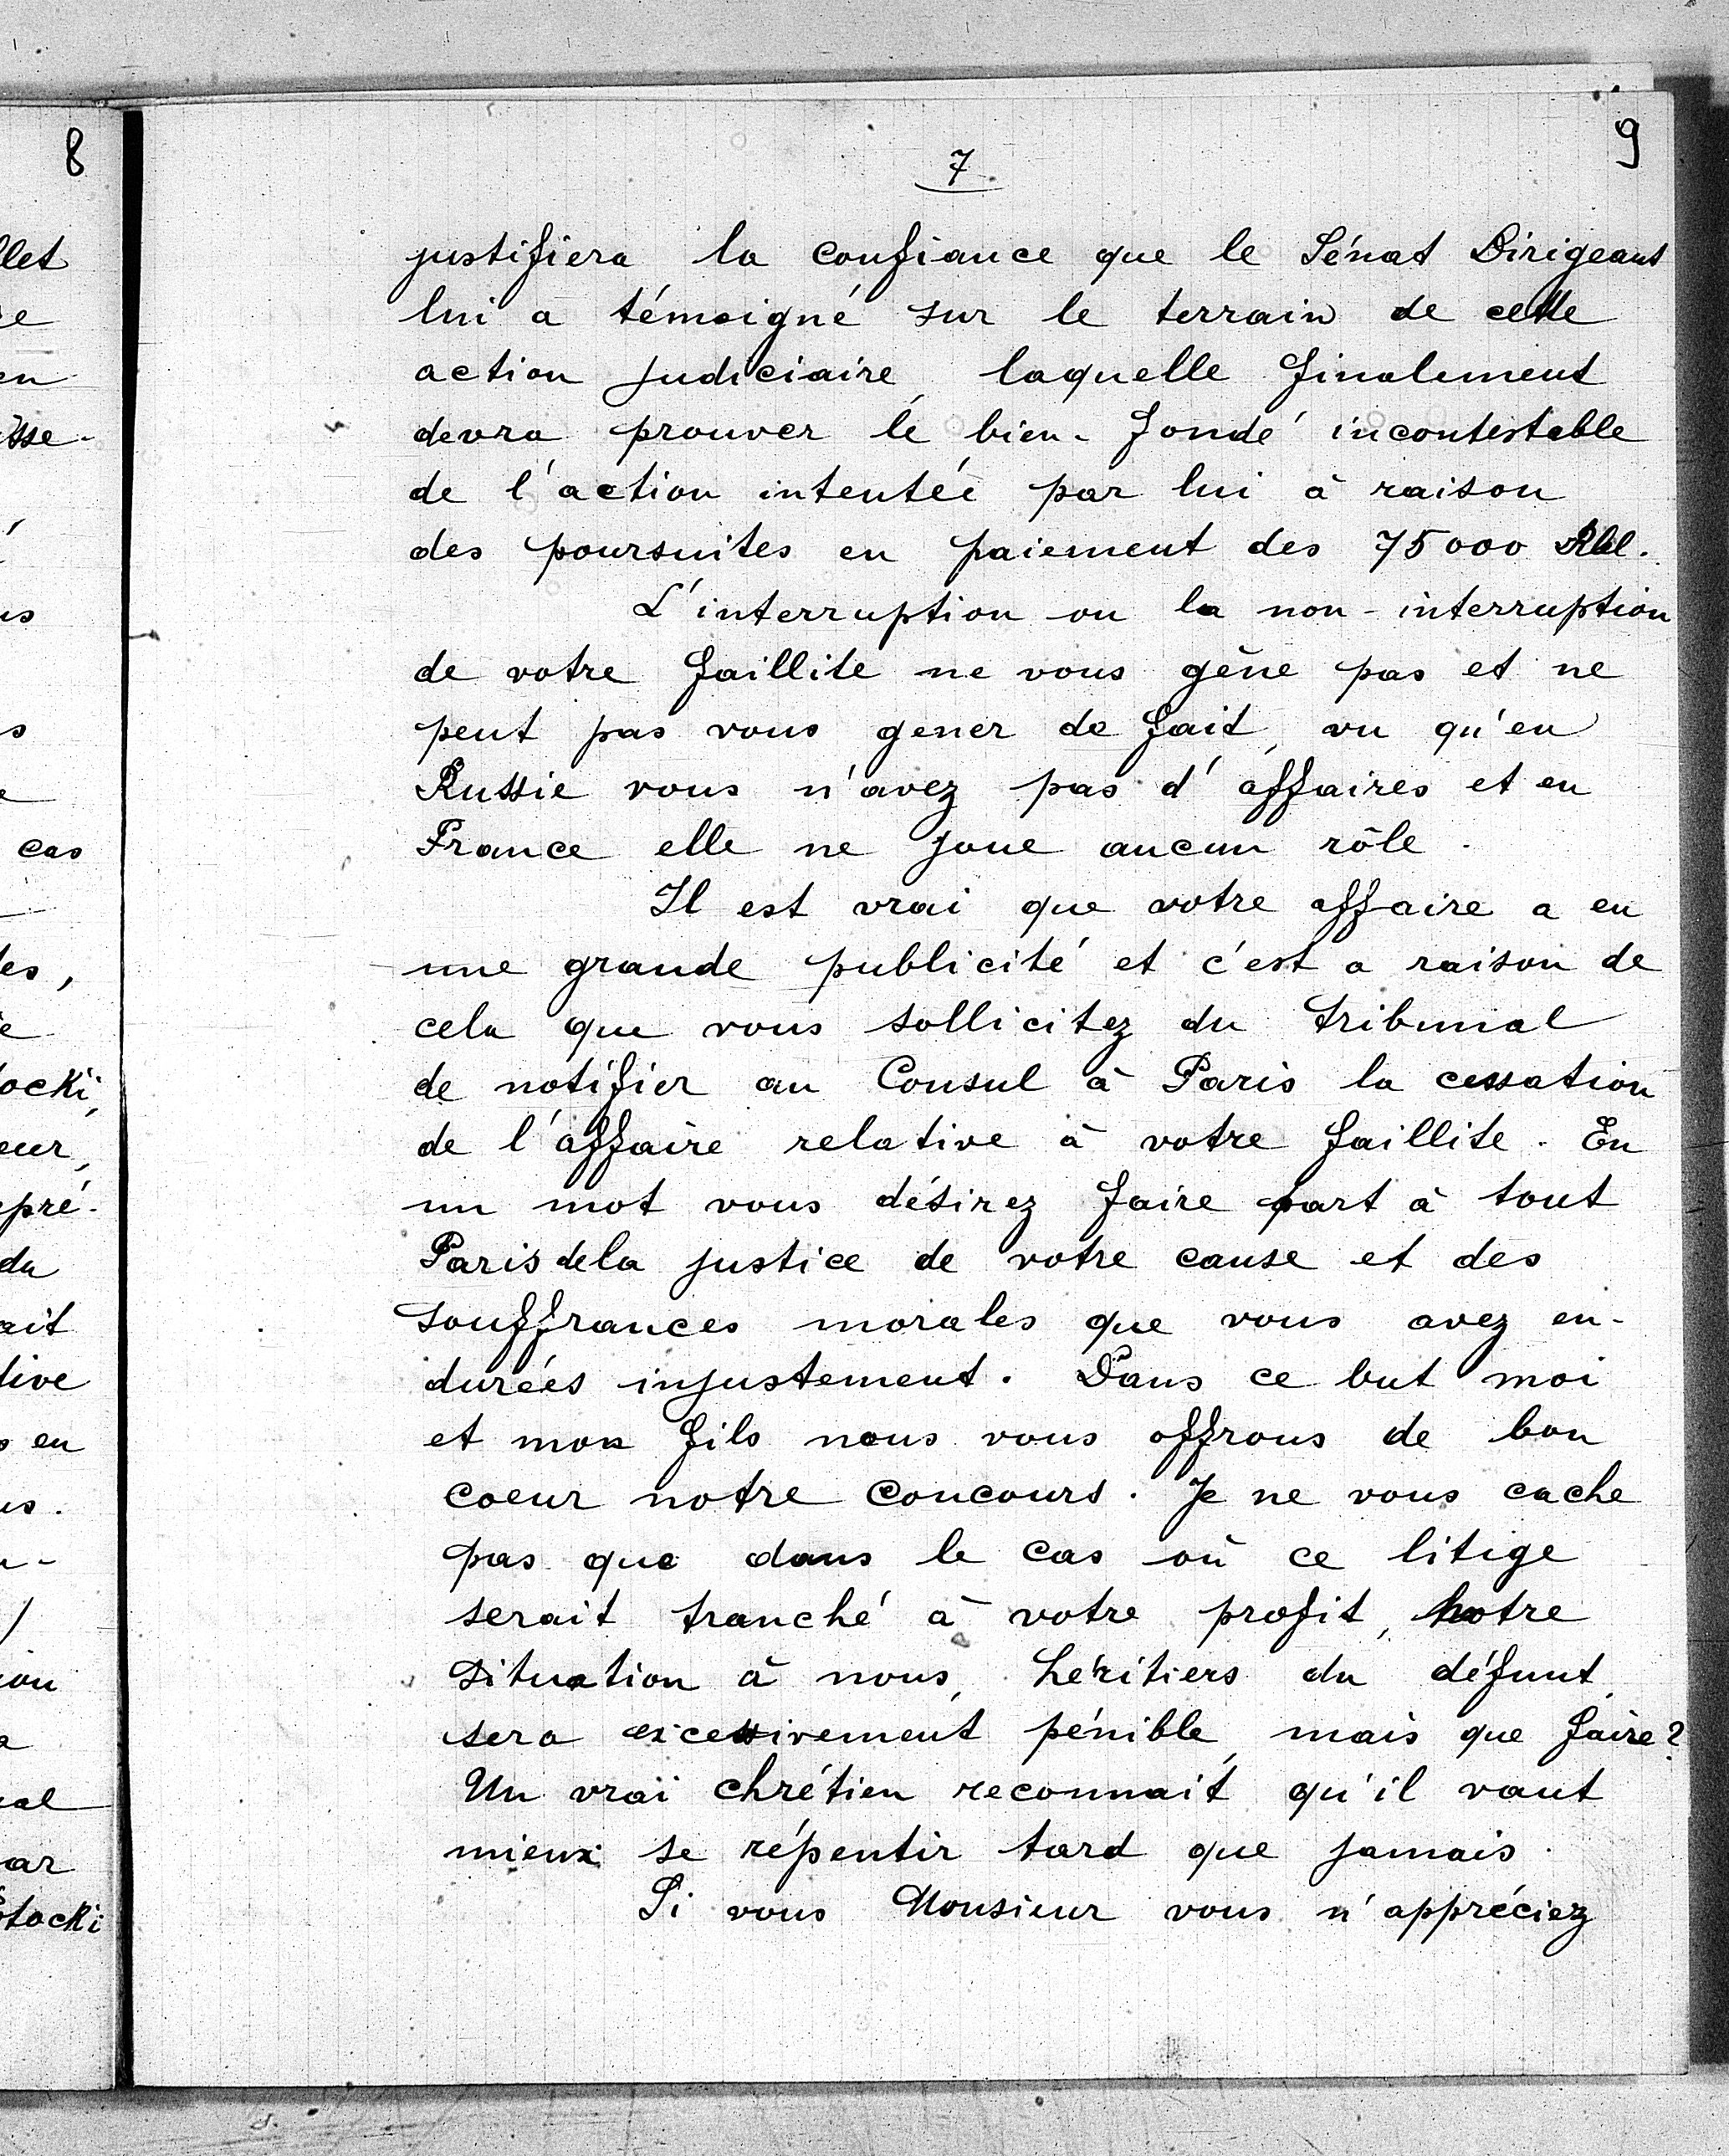 8
llet
en
cas
ocki,
eur,
epré-
du
ait
en
ar
9
7
justifiera la confiance que le Sénat Dirigeant
lui a témoigné sur le terrain de cette
action judiciaire, laquelle finalement
devra prouver le bien-fondé incontestable
de l'action intentée par lui à raison
des poursuites en paiement des 75000 Rbl.
L'interruption ou la non-interruption
de votre faillite ne vous gêne pas et ne
peut pas vous gener de fait, vu qu'en
Russie vous n'avez pas d'affaires et en
France elle ne joue aucun rôle.
Il est vrai que votre affaire a eu
une grande publicité et c'est a raison de
cela que vous sollicitez du tribunal
de notifier au Consul à Paris la cessation
de l'affaire relative à votre faillite. En
un mot vous désirez faire part à tout
Paris de la justice de votre cause et des
souffrances morales que vous avez en-
durées injustement. Dans ce but moi
et mon fils nous vous offrons de bon
coeur notre concours. Je ne vous cache
pas que dans le cas où ce litige
serait tranché à votre profit, notre
situation à nous, héritiers du défunt,
sera excessivement pénible, mais que faire?
Un vrai chrétien reconnait qu'il vaut
mieux se répentir tard que jamais.
Si vous Monsieur vous n'appréciez